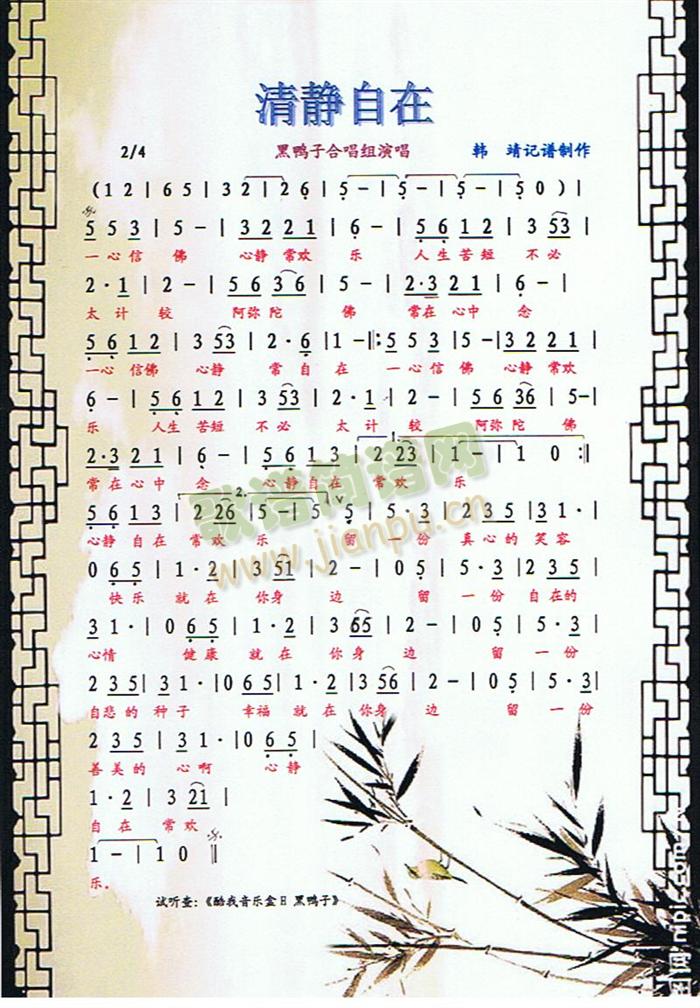 清静自在
2/4 黑鸭子合唱组演唱 韩 靖记谱制作
(1 2 | 6 5 | 3 2 | 2 6 | 5 - | 5 - | 5 - | 5 0 ) |
5 5 3 | 5 - | 3 2 2 1 | 6 - | 5 6 1 2 | 3 53 |
一心信 佛 心静 常欢 乐 人生苦短 不必
2 · 1 | 2 - | 5 6 3 6 | 5 - | 2·3 2 1 | 6 - |
太 计 较 阿弥陀 佛 常在心中 念
5 6 1 2 | 3 53 | 2 · 6 | 1 - :‖: 5 5 3 | 5 - | 3 2 2 1 |
一心 信佛 心静 常 自 在 一心信佛 心静 常欢
6 - | 5 6 1 2 | 3 53 | 2 · 1 | 2 - | 5 6 36 | 5 - |
乐 人生 苦短 不必 太 计 较 阿弥陀 佛
2·3 2 1 | 6 - | 5 6 1 3 | 2 23 | 1 - | 1 0 :‖
常在心中 念 心静自在 常欢 乐
5 6 1 3 | 2 26 | 5 - | 5 5 | 5 · 3 | 2 3 5 | 3 1 · |
心静 自在 常欢 乐 留 一 份 真心的 笑容
0 6 5 | 1 · 2 | 3 51 | 2 - | 0 5 | 5 · 3 | 2 3 5 |
快乐 就在 你身 边 留 一份 自在的
3 1 · | 0 6 5 | 1 · 2 | 3 65 | 2 - | 0 5 | 5 · 3 |
心情 健康 就在 你身 边 留 一份
2 3 5 | 3 1 · | 0 6 5 | 1 · 2 | 3 56 | 2 - | 0 5 | 5 · 3 |
自悲的 种子 幸福 就在 你身 边 留 一份
2 3 5 | 3 1 · | 0 6 5 |
善美的 心啊 心静
1 · 2 | 3 21 |
自在 常欢
1 - | 1 0 ‖
乐.
试听查:《酷我音乐盒 H 黑鸭子》
歌谱简谱网
www.jianpu.cn